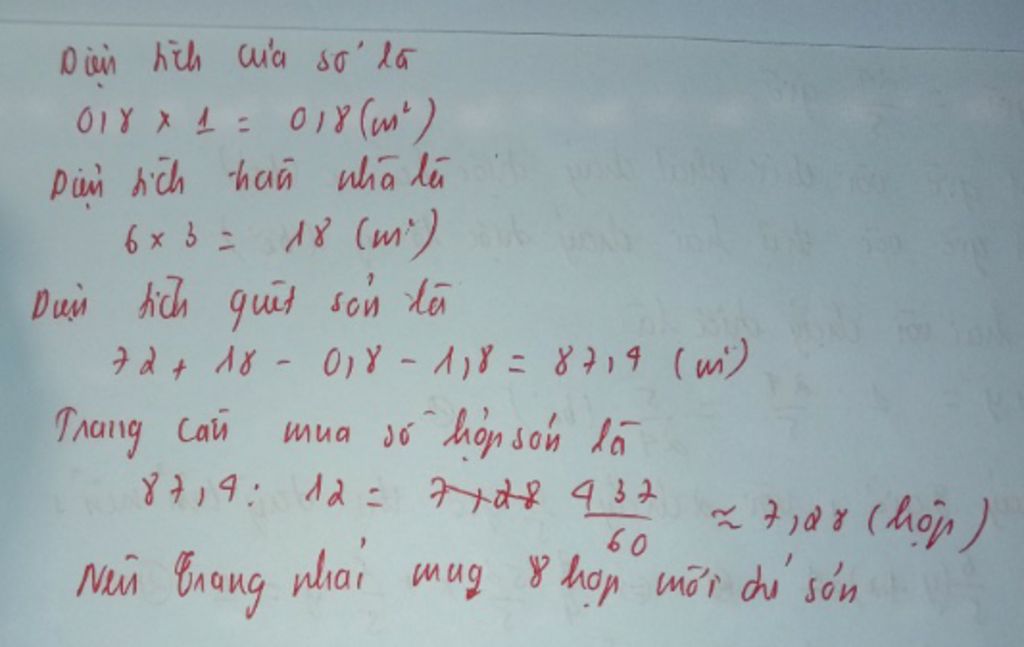 Diện tích cửa sổ là
0,8 × 1 = 0,8 (m²)
Diện tích trần nhà là
6 × 3 = 18 (m²)
Diện tích quét sơn là
72 + 18 - 0,8 - 1,8 = 87,4 (m²)
Trang cần mua số hộp sơn là
87,4 : 12 = 7,28 437/60 ≈ 7,28 (hộp)
Nên Trang phải mua 8 hộp mới đủ sơn